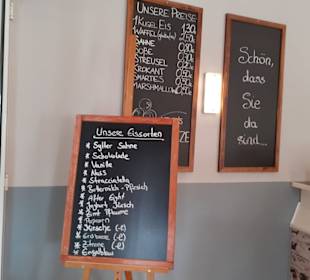 Unsere Preise
1 Kugel Eis 1,30
Waffel
Sahne 0,50
Soße
Streusel
Krokant
Smarties
Marshmallow
Schön,
dass
Sie
da
sind...
Unsere Eissorten
* Sylter Sahne
* Schokolade
* Vanille
* Nuss
* Stracciatella
* Buttermilch-Pfirsich
* After Eight
* Joghurt Kirsch
* Zimt Pflaume
* Popcorn
* Kirsche (-L)
* Erdbeere (-L)
* Zitrone (-L)
* Engelblau